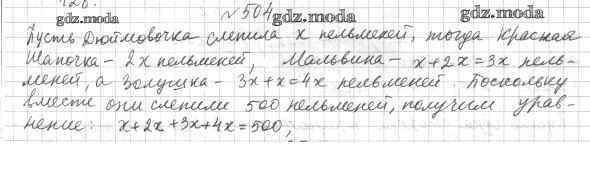 №504
gdz.moda gdz.moda gdz.moda
Пусть Дюймовочка слепила x пельменей, тогда Красная
Шапочка - 2x пельменей, Мальвина - x+2x=3x пель-
меней, а Золушка - 3x+x=4x пельменей. Поскольку
вместе они слепили 500 пельменей, получим урав-
нение: x+2x+3x+4x=500;